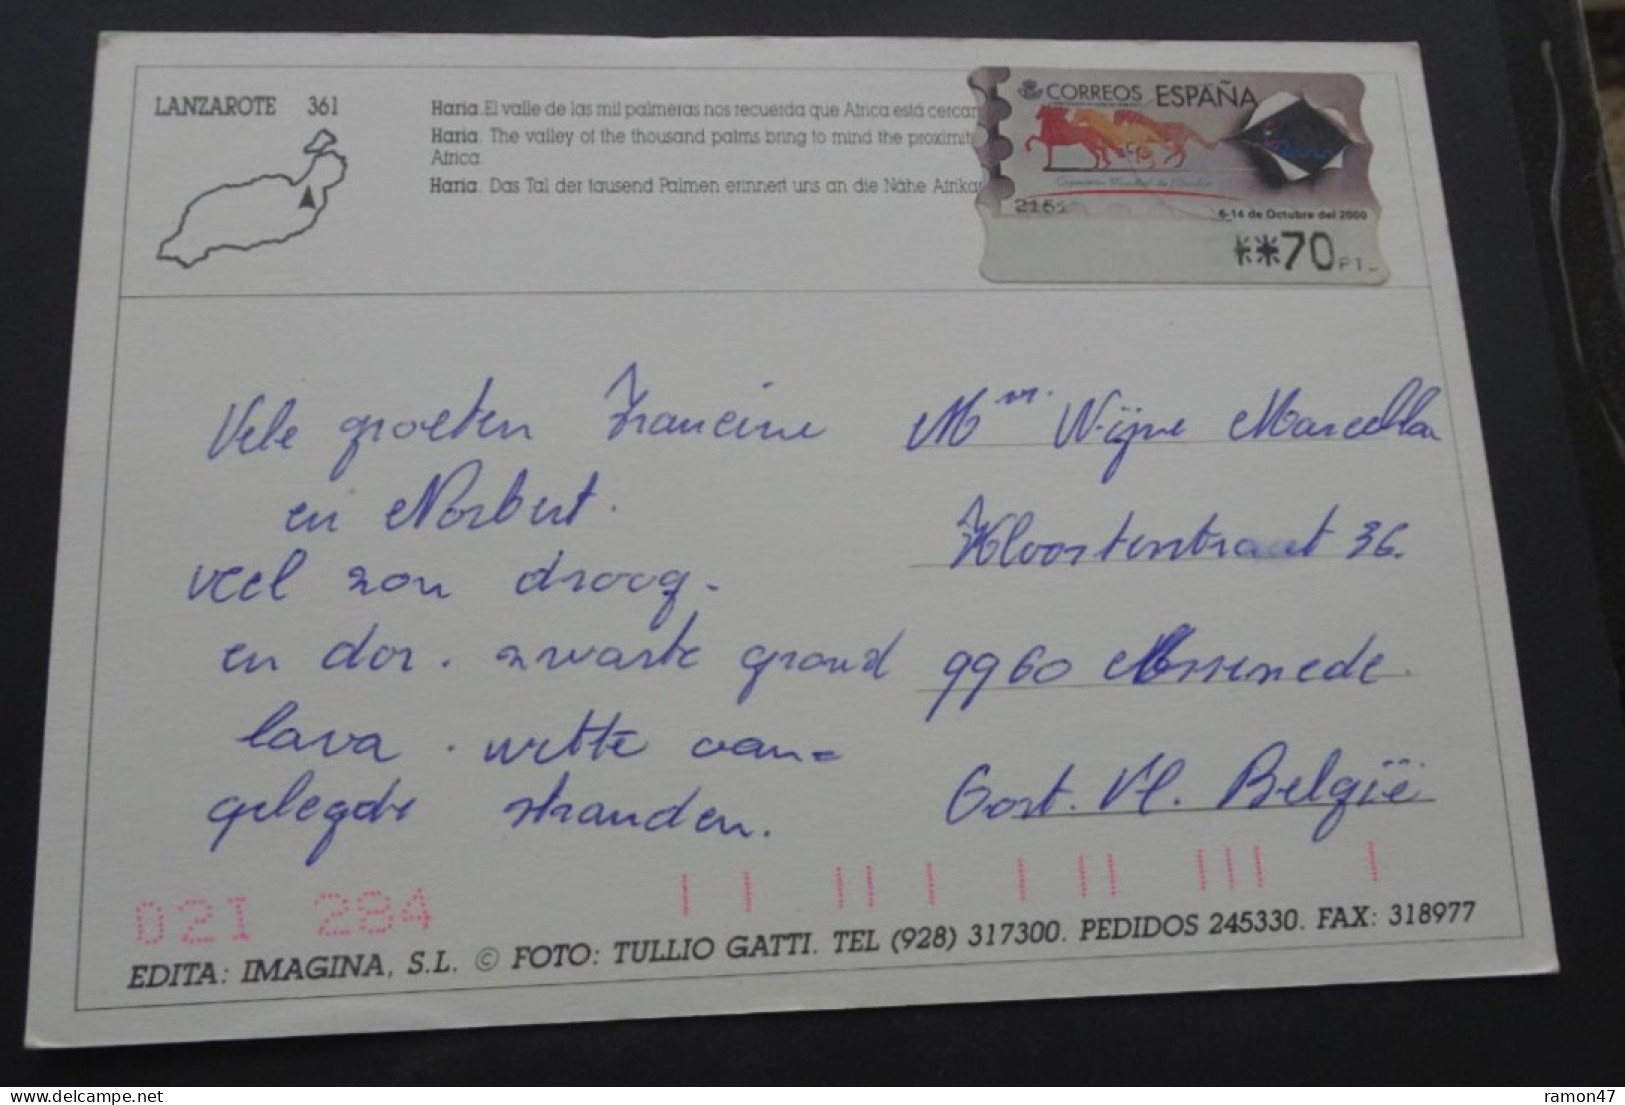 LANZAROTE 361
Haria. El valle de las mil palmeras nos recuerda que Africa está cercan
Haria. The valley of the thousand palms bring to mind the proximit
Africa.
Haria. Das Tal der tausend Palmen erinnert uns an die Nähe Afrika
CORREOS ESPAÑA
2161
6-14 de Octubre del 2000
**70 PT_
Vele groeten Francine
en Norbert.
veel zon droog.
en dor. zwarte grond
lava. witte aan=
gelegde stranden.
Mvr. Wijne Marcella
Kloosterstraat 36.
9960 Assenede.
Oost. Vl. België
02I 284
EDITA: IMAGINA, S.L. © FOTO: TULLIO GATTI. TEL (928) 317300. PEDIDOS 245330. FAX: 318977
© ramon47